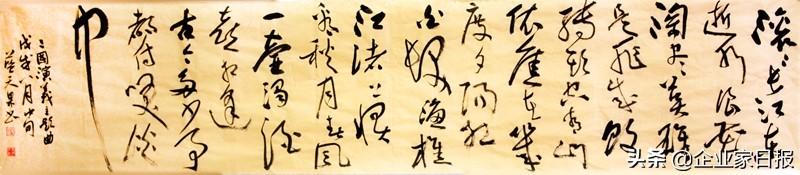 滚滚长江东
逝水浪花
淘尽英雄
是非成败
转头空青山
依旧在几
度夕阳红
白发渔樵
江渚上惯
看秋月春风
一壶浊酒
喜相逢
古今多少事
都付笑谈
中
三国演义主题曲
戊戌八月中旬
头条 @企业家日报